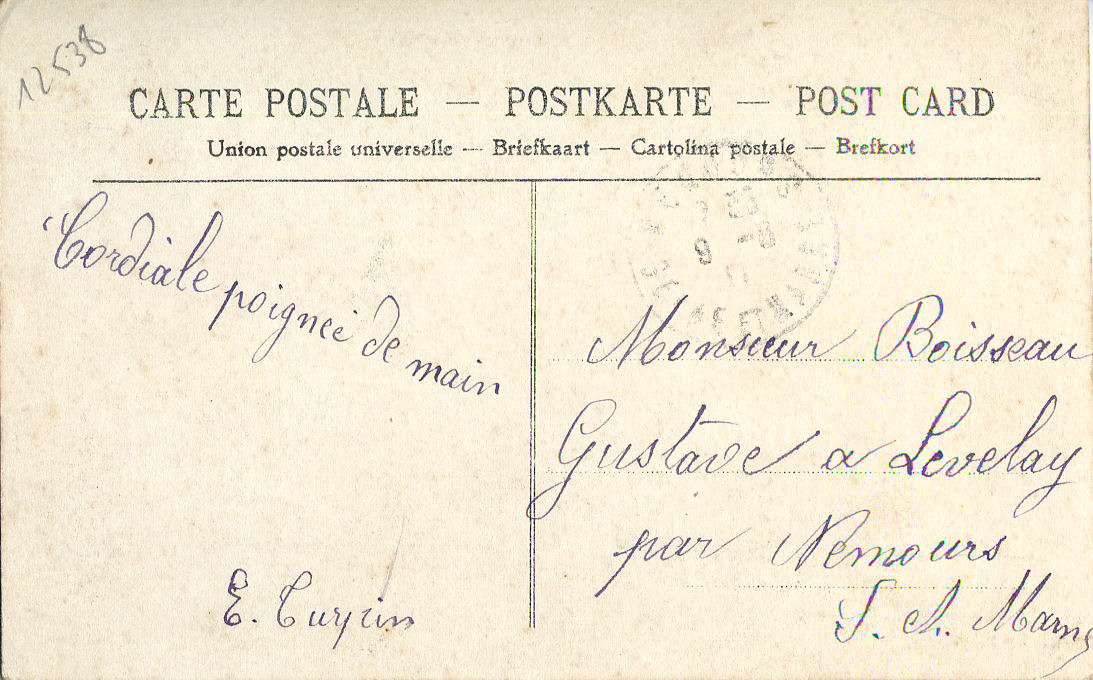 12538
CARTE POSTALE — POSTKARTE — POST CARD
Union postale universelle — Briefkaart — Cartolina postale — Brefkort
Cordiale poignée de main
E. Turpin
Monsieur Boisseau
Gustave a Levelay
par Nemours
S. A. Marne